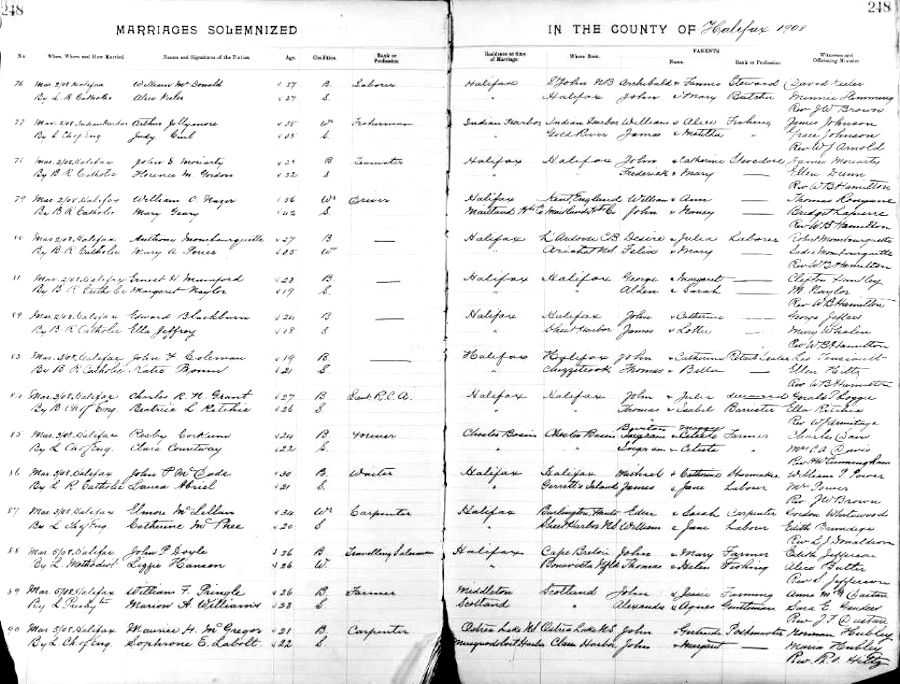 248
248
MARRIAGES SOLEMNIZED
IN THE COUNTY OF Halifax 1908
No. When, Where and How Married. Names and Signatures of the Parties. Age. Condition. Rank or Profession. Residence at time of Marriage. Where Born. PARENTS. Name. Rank or Profession. Witnesses and Officiating Minister.
76 Mar 2/08 Halifax William McDonald 27 B Laborer Halifax St John NB Archibald & Fannie David Keeler
By L R Catholic Alice Keeler 27 S " Halifax John & Mary Butcher Minnie Hemming
Rev JW Brown
77 Arthur Jollymore 35 Wr Fisherman Indian Harbor Indian Harbor William & Alice Fishing James Johnson
By L Ch of Eng Judy 35 S " Gold River James & Matilda " Grace Johnson
Rev WJ Arnold
78 Mar 2/08 Halifax John E Moriarty 29 B Teamster Halifax Halifax John & Catherine Stevedore James Moriarty
By B R Catholic Florence M Gordon 22 S " Frederick & Mary — Ellen Dunn
Rev WB Hamilton
79 Mar 2/08 Halifax William C 56 Wr Driver Halifax Kent, England William & Ann — Thomas
By B R Catholic Mary Geary 42 S Maitland John & Nancy — Bridget Lapierre
Rev WB Hamilton
80 Mar 2/08 Halifax Anthony Mombourquette 27 B — Halifax L'Ardoise CB Desire & Julia Laborer Robert Mombourquette
By B R Catholic Mary A 25 Wr " Arichat NS Felix & Mary — Sadie Mombourquette
Rev WB Hamilton
81 Mar 2/08 Halifax Ernest H Mumford 23 B — Halifax Halifax George & Margaret — Clifton
By B R Catholic Margaret Naylor 19 S " Alden & Sarah — M Naylor
Rev WB Hamilton
82 Mar 2/08 Halifax Edward Blackburn 26 B — Halifax Halifax John & Catherine — George Jeffers
By B R Catholic Ella Jeffrey 18 S " Sheet Harbor James & Lottie — Mary Whalen
Rev WB Hamilton
83 Halifax John F Coleman 19 B — Halifax Halifax John & Catherine Retail Dealer Leo
By B R Catholic Katie 21 S " Chezzetcook Thomas & Bella — Ellen
Rev WB Hamilton
84 Mar 3/08 Halifax Charles R H Grant 27 B Lieut R.C.A. Halifax Halifax John & Julia deceased Gerald Hoggie
By B Ch of Eng Beatrice L Ritchie 26 S " Thomas & Isabel Barrister Ella Ritchie
Rev WJ Armitage
85 Mar 3/08 Halifax Rosby Corkum 24 B Farmer Chester Basin Chester Basin & Celeste Farmer Charles
By L Ch of Eng Clara Countway 22 S " & Celeste " Mrs C A
Rev Cunningham
86 Mar 3/08 Halifax John P McDade 30 B Waiter Halifax Halifax Michael & Catherine William T Power
By L R Catholic Laura Abriel 21 S " Gerrard's Island James & Jane Labour Mrs Power
Rev JW Brown
87 Mar 3/08 Halifax Elmore McLellan 24 Wr Carpenter Halifax Burlington, Hants & Sarah Carpenter Gordon
By L Ch of Eng Catherine McPhee 20 S " Sheet Harbor NS William & Jane Labour Edith Brundage
Rev L J Donaldson
88 Mar 5/08 Halifax John P Doyle 36 B Travelling Salesman Halifax Cape Breton John & Mary Farmer Edith Jefferson
By L Methodist Lizzie Hansen 26 W " Bonavista Nfld Thomas & Helen Fishing Alice Butler
Rev S Jefferson
89 Mar 5/08 Halifax William F. Pringle 26 B Farmer Middleton Scotland John & Jessie Farming Anna M
By L Presbyt Marion A Williams 28 S Scotland " Alexander & Agnes Gentleman Sara E
Rev J F Dustan
90 Mar 5/08 Halifax Maurice H. McGregor 21 B Carpenter Ostrea Lake NS Ostrea Lake NS John & Gertrude Postmaster Norman Hubley
By L Ch of Eng Sophrone E. Labolt 22 S Musquodoboit Harbor Clam Harbor John & Margaret — Maria Hubley
Rev. R. A. Hiltz